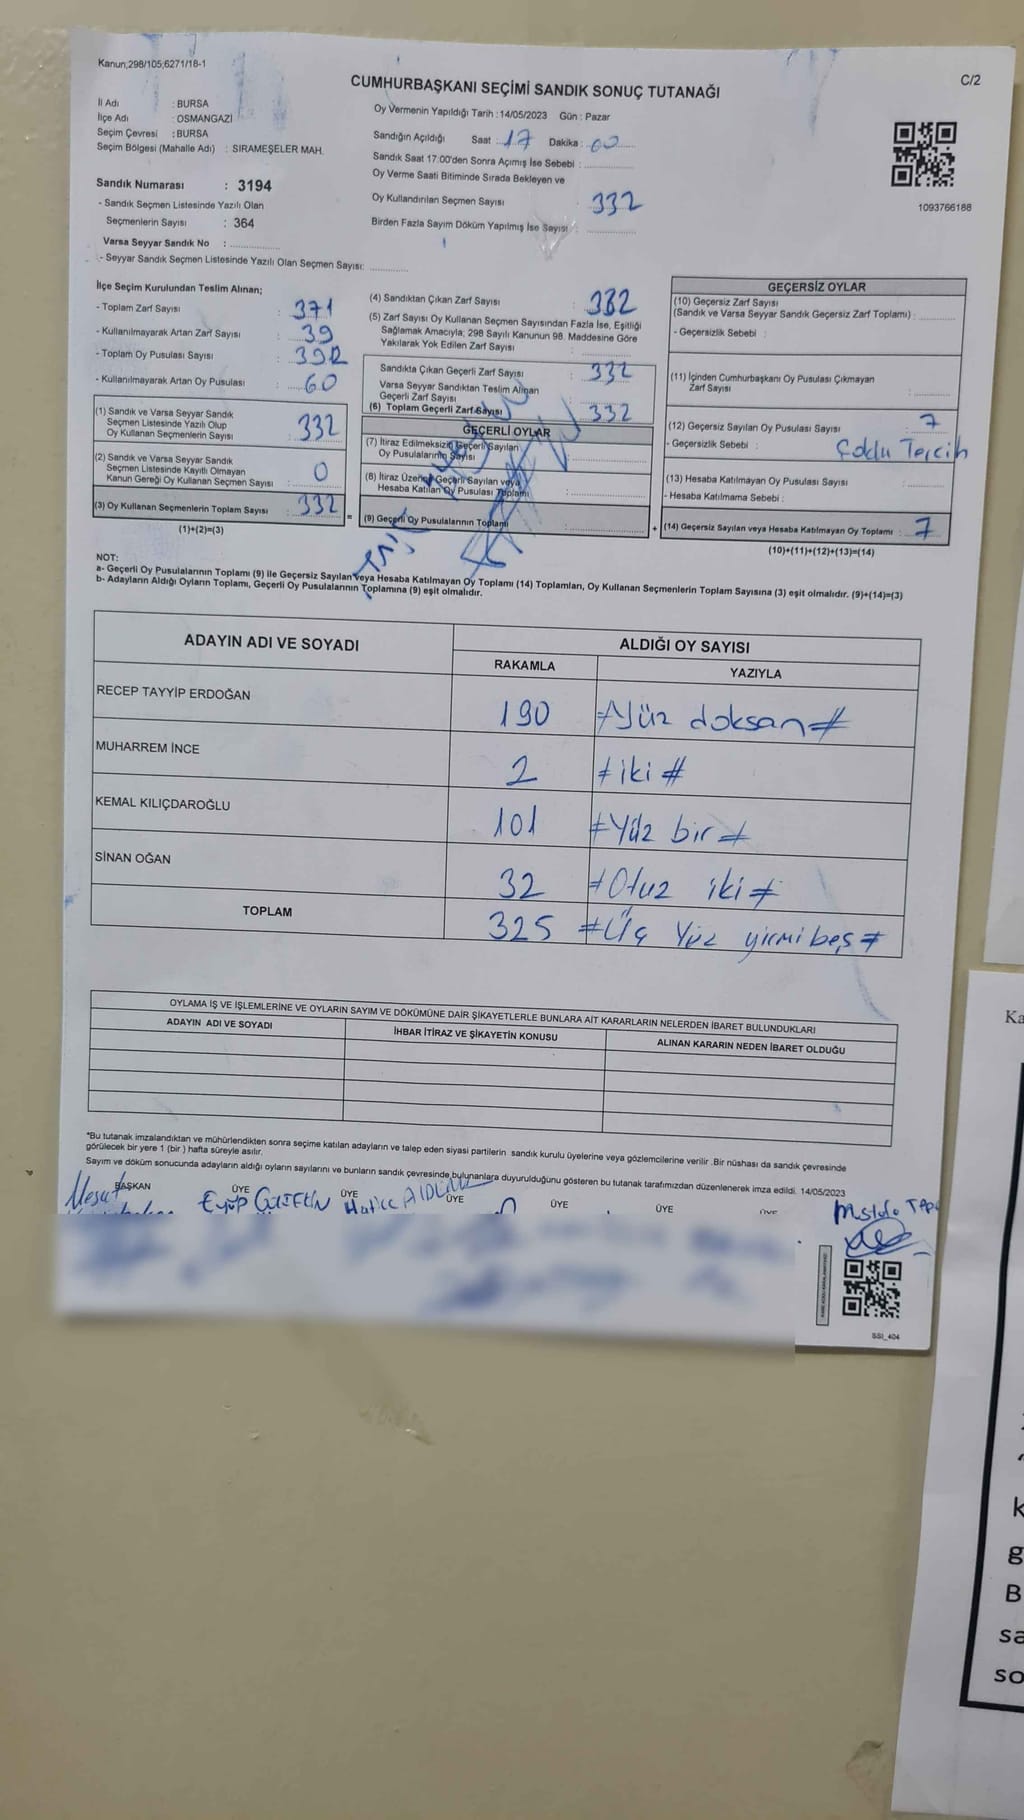 Kanun;298/105;6271/18-1
C/2
CUMHURBAŞKANI SEÇİMİ SANDIK SONUÇ TUTANAĞI
İl Adı : BURSA
İlçe Adı : OSMANGAZİ
Seçim Çevresi : BURSA
Seçim Bölgesi (Mahalle Adı) : SIRAMEŞELER MAH.
Sandık Numarası : 3194
- Sandık Seçmen Listesinde Yazılı Olan
Seçmenlerin Sayısı : 364
Varsa Seyyar Sandık No :
- Seyyar Sandık Seçmen Listesinde Yazılı Olan Seçmen Sayısı:
Oy Vermenin Yapıldığı Tarih : 14/05/2023 Gün : Pazar
Sandığın Açıldığı Saat : 17 Dakika : 00
Sandık Saat 17:00'den Sonra Açımış İse Sebebi :
Oy Verme Saati Bitiminde Sırada Bekleyen ve
Oy Kullandırılan Seçmen Sayısı : 332
Birden Fazla Sayım Döküm Yapılmış İse Sayısı :
1093766188
İlçe Seçim Kurulundan Teslim Alınan;
- Toplam Zarf Sayısı : 371
- Kullanılmayarak Artan Zarf Sayısı : 39
- Toplam Oy Pusulası Sayısı : 392
- Kullanılmayarak Artan Oy Pusulası : 60
(1) Sandık ve Varsa Seyyar Sandık
Seçmen Listesinde Yazılı Olup
Oy Kullanan Seçmenlerin Sayısı : 332
(2) Sandık ve Varsa Seyyar Sandık
Seçmen Listesinde Kayıtlı Olmayan
Kanun Gereği Oy Kullanan Seçmen Sayısı : 0
(3) Oy Kullanan Seçmenlerin Toplam Sayısı : 332
(1)+(2)=(3)
(4) Sandıktan Çıkan Zarf Sayısı : 332
(5) Zarf Sayısı Oy Kullanan Seçmen Sayısından Fazla İse, Eşitliği
Sağlamak Amacıyla; 298 Sayılı Kanunun 98. Maddesine Göre
Yakılarak Yok Edilen Zarf Sayısı :
Sandıkta Çıkan Geçerli Zarf Sayısı : 332
Varsa Seyyar Sandıktan Teslim Alınan
Geçerli Zarf Sayısı :
(6) Toplam Geçerli Zarf Sayısı : 332
GEÇERLİ OYLAR
(7) İtiraz Edilmeksizin Geçerli Sayılan
Oy Pusulalarının Sayısı :
(8) İtiraz Üzerine Geçerli Sayılan veya
Hesaba Katılan Oy Pusulası Toplamı :
= (9) Geçerli Oy Pusulalarının Toplamı :
GEÇERSİZ OYLAR
(10) Geçersiz Zarf Sayısı
(Sandık ve Varsa Seyyar Sandık Geçersiz Zarf Toplamı) :
- Geçersizlik Sebebi :
(11) İçinden Cumhurbaşkanı Oy Pusulası Çıkmayan
Zarf Sayısı :
(12) Geçersiz Sayılan Oy Pusulası Sayısı : 7
- Geçersizlik Sebebi : Çoklu Tercih
(13) Hesaba Katılmayan Oy Pusulası Sayısı :
- Hesaba Katılmama Sebebi :
+ (14) Geçersiz Sayılan veya Hesaba Katılmayan Oy Toplamı : 7
(10)+(11)+(12)+(13)=(14)
NOT:
a- Geçerli Oy Pusulalarının Toplamı (9) ile Geçersiz Sayılan veya Hesaba Katılmayan Oy Toplamı (14) Toplamları, Oy Kullanan Seçmenlerin Toplam Sayısına (3) eşit olmalıdır. (9)+(14)=(3)
b- Adayların Aldığı Oyların Toplamı, Geçerli Oy Pusulalarının Toplamına (9) eşit olmalıdır.
ADAYIN ADI VE SOYADI ALDIĞI OY SAYISI
RAKAMLA YAZIYLA
RECEP TAYYİP ERDOĞAN 190 # Yüz doksan #
MUHARREM İNCE 2 # iki #
KEMAL KILIÇDAROĞLU 101 # Yüz bir #
SİNAN OĞAN 32 # Otuz iki #
TOPLAM 325 # Üç Yüz yirmi beş #
OYLAMA İŞ VE İŞLEMLERİNE VE OYLARIN SAYIM VE DÖKÜMÜNE DAİR ŞİKAYETLERLE BUNLARA AİT KARARLARIN NELERDEN İBARET BULUNDUKLARI
ADAYIN ADI VE SOYADI İHBAR İTİRAZ VE ŞİKAYETİN KONUSU ALINAN KARARIN NEDEN İBARET OLDUĞU
*Bu tutanak imzalandıktan ve mühürlendikten sonra seçime katılan adayların ve talep eden siyasi partilerin sandık kurulu üyelerine veya gözlemcilerine verilir .Bir nüshası da sandık çevresinde
görülecek bir yere 1 (bir ) hafta süreyle asılır.
Sayım ve döküm sonucunda adayların aldığı oyların sayılarını ve bunların sandık çevresinde bulunanlara duyurulduğunu gösteren bu tutanak tarafımızdan düzenlenerek imza edildi. 14/05/2023
BAŞKAN ÜYE ÜYE ÜYE ÜYE ÜYE ÜYE
Mesut Eyüp Hatice AYDIN
SSI_404
Ka
k
g
B
sa
so